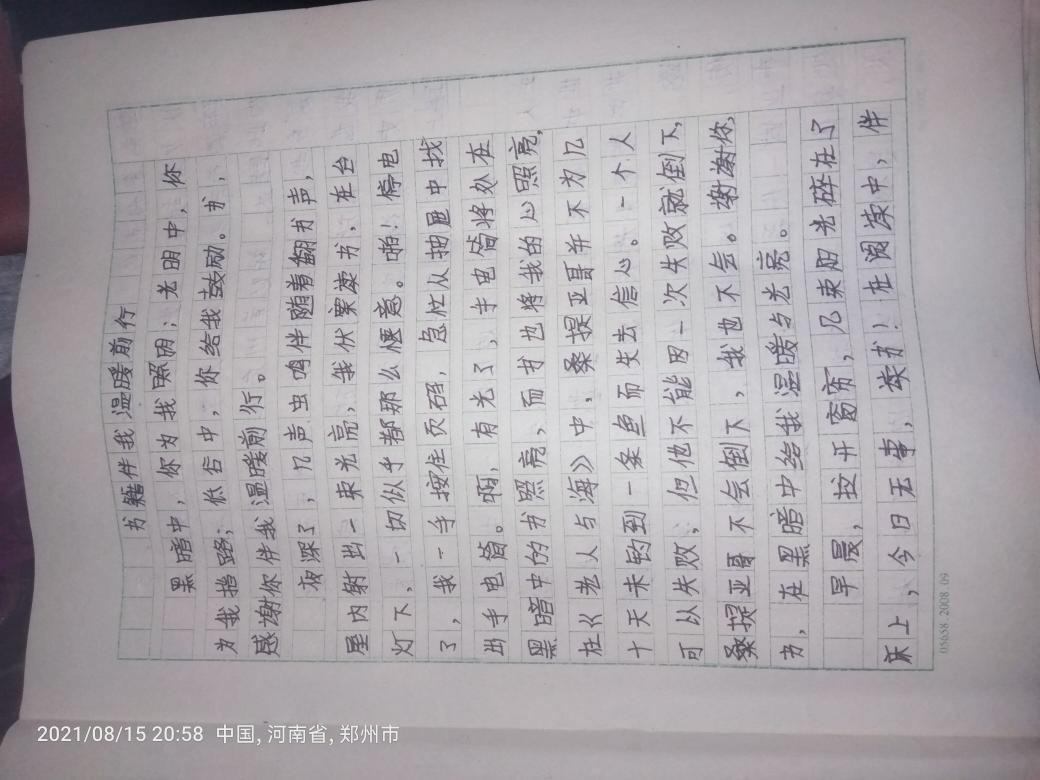 书籍伴我温暖前行
黑暗中，你为我照明；光明中，你
为我挡路；低谷中，你给我鼓励。书，
感谢你伴我温暖前行。
夜深了，几声虫鸣伴随着翻书声，
屋内射出一束光亮，我伏案读书，在台
灯下，一切似乎都那么惬意。啪！停电
了，我一手按住页码，急忙从抽屉中找
出手电筒。啊，有光了，手电筒将处在
黑暗中的书照亮，而书也将我的心照亮，
在《老人与海》中，桑提亚哥并不为几
十天未钓到一条鱼而失去信心。一个人
可以失败，但他不能因一次失败就倒下，
桑提亚哥不会倒下，我也不会。谢谢你，
书，在黑暗中给我温暖与光亮。
早晨，拉开窗帘，几束阳光碎在了
床上，今日无事，读书！在阅读中，伴
05658.2008.09
2021/08/15 20:58 中国, 河南省, 郑州市